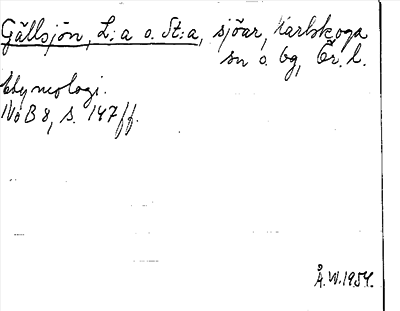 Gällsjön, L:a o. St:a, sjöar, Karlskoga
sn o. bg, Ör. l.
Etymologi.
NoB 8, s. 147 ff.
Å.W. 1954.